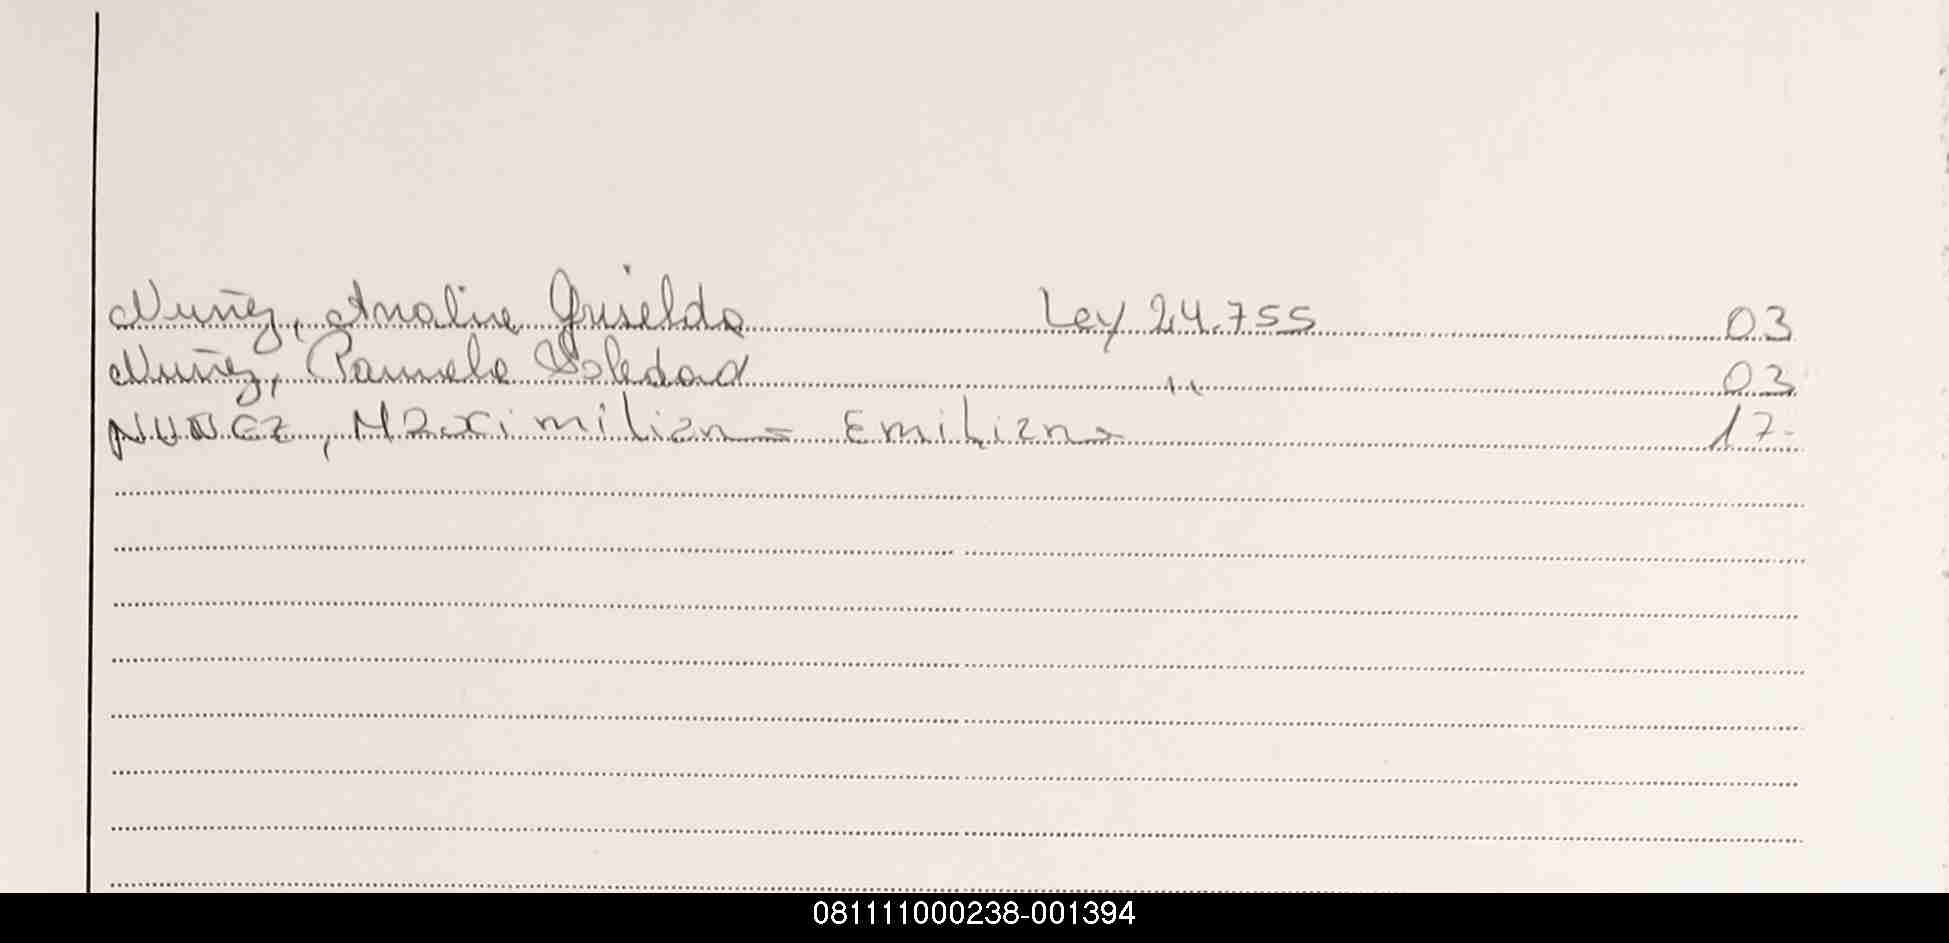 Nuñez, Analia Griselda Ley 24.755 03
Nuñez, Pamela Soledad " 03
NUÑEZ, Maximiliano Emiliano 17-
081111000238-001394